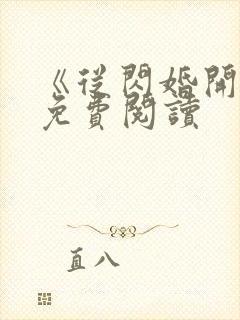 《从閃婚開
免費閱讀
直八